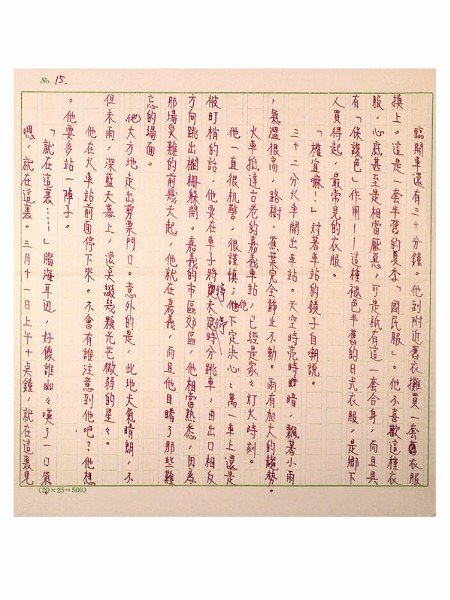 No. 15.
臨開車還有三十分鐘。他到附近舊衣攤買一套衣服
換上。這是一套半舊的夏季「國民服」。他不喜歡這種衣
服，心底甚至是相當厭惡，可是祇有這一套合身，而且具
有「保護色」作用——這種褪色半舊的日式衣服，是鄉下
人買得起，最常見的衣服。
「權宜嘛！」對著車站的鏡子自嘲說。
三十二分火車開出車站。天空時亮時暗，飄著小雨
，氣溫很高，路樹，蕉葉完全靜止不動。雨有加大的趨勢。
火車抵達古老的嘉義車站，已經是家々灯火時刻。
他一直很机警，很謹慎；他下定決心：萬一車上還是
被盯梢的話，他要在車子將停未停時分跳車，由出口相反
方向跳出柵欄躲開。嘉義的市區郊區，他相當熟悉，因為
那場災難的前幾天起，他就在嘉義，而且他目睹了那些難
忘的場面。
他大方地走出剪票門口。意外的是，此地大氣晴朗，不
但未雨，深藍天幕上，還點綴幾顆光芒微弱的星々。
他在火車站前面停下來。不會有誰注意到他吧？他想
。他要多站一陣子。
「就在這裏……！」腦海耳边，好像誰幽々嘆了一口氣
嗯，就在這裏。三月十一日上午十点鐘，就在這裏見
(20×25=500)